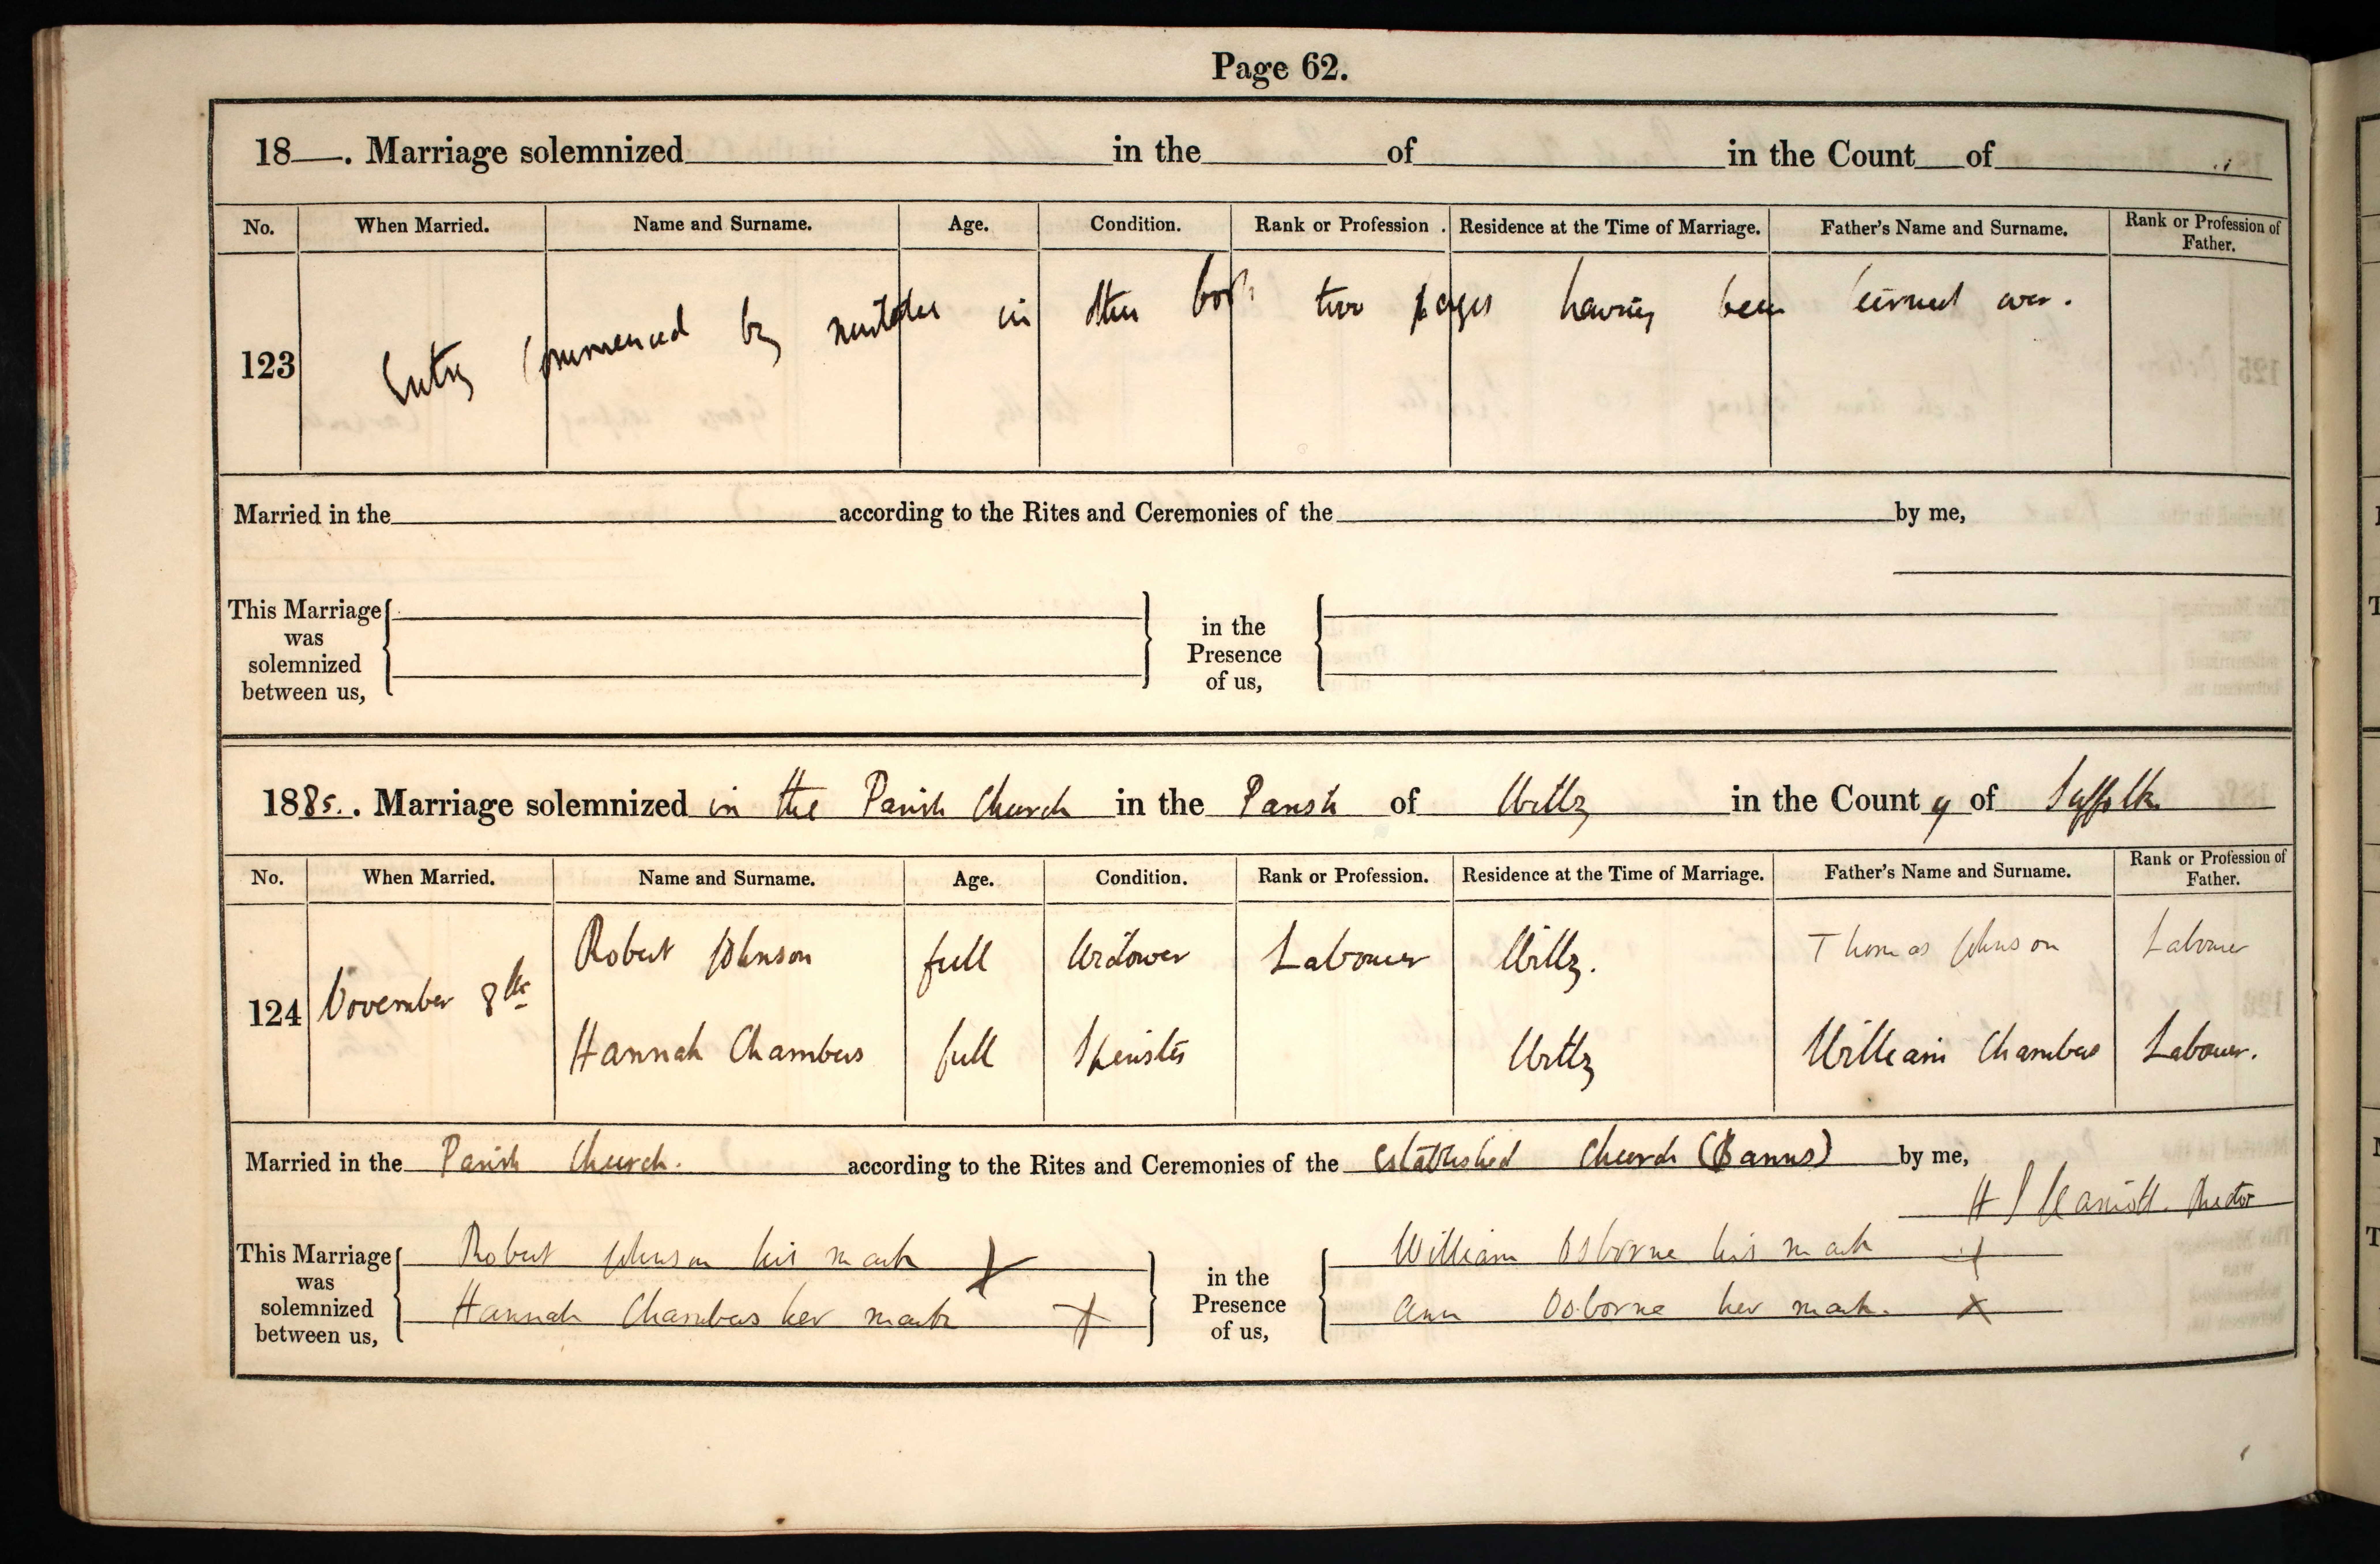 Page 62.
18—. Marriage solemnized in the of in the Count of
No. When Married. Name and Surname. Age. Condition. Rank or Profession. Residence at the Time of Marriage. Father's Name and Surname. Rank or Profession of Father.
123 Entry commenced by mistake in other book two pages having been turned over.
Married in the according to the Rites and Ceremonies of the by me,
This Marriage was solemnized between us,
in the Presence of us,
1885. Marriage solemnized in the Parish Church in the Parish of in the County of Suffolk
No. When Married. Name and Surname. Age. Condition. Rank or Profession. Residence at the Time of Marriage. Father's Name and Surname. Rank or Profession of Father.
Robert Johnson full Widower Labourer Thomas Johnson Labourer
124 November 8th
Hannah Chambers full Spinster William Chambers Labourer.
Married in the Parish Church. according to the Rites and Ceremonies of the Established Church (Banns) by me,
H Rector
This Marriage was solemnized between us,
Robert Johnson his mark X
Hannah Chambers her mark X
in the Presence of us,
William Osborne his mark X
Ann Osborne her mark. X